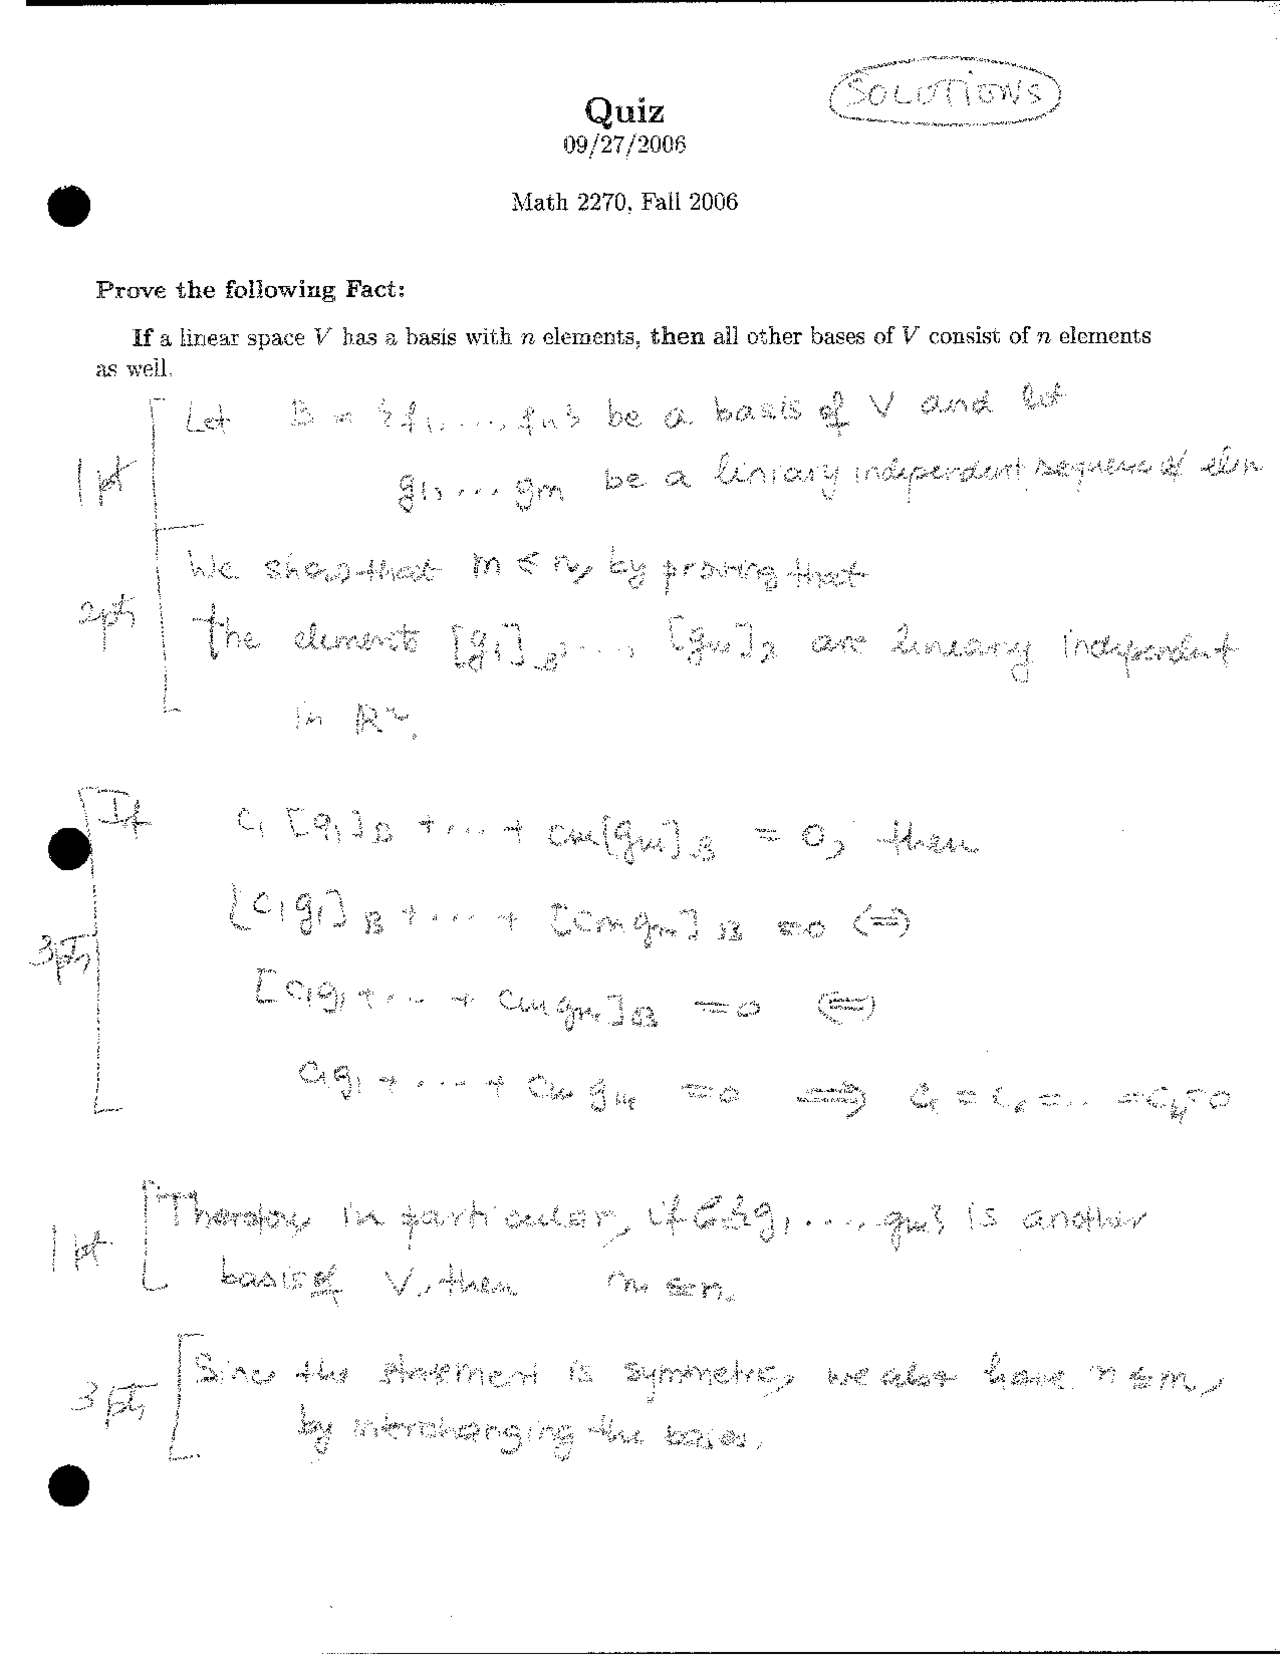 SOLUTIONS
Quiz
09/27/2006
Math 2270, Fall 2006
Prove the following Fact:
If a linear space V has a basis with n elements, then all other bases of V consist of n elements
as well.
1pt
Let B = {f1, ..., fn} be a basis of V and let
g1, ... gm be a liniary independent sequence of elem
2pts
We show that m ≤ n, by proving that
the elements [g1]B, ..., [gm]B are lineary independent
in R^n.
3pts
If c1 [g1]B + ... + cm[gm]B = 0, then
[c1g1]B + ... + [cmgm]B = 0 (⇔)
[c1g1 + ... + cmgm]B = 0 (⇔)
c1g1 + ... + cmgm = 0 ⟹ c1 = c2 = ... = cm = 0
1pt
Therefore in particular, if {g1, ..., gm} is another
basis of V, then m ≤ n.
3pts
Since the statement is symmetric, we also have n ≤ m,
by interchanging the bases.